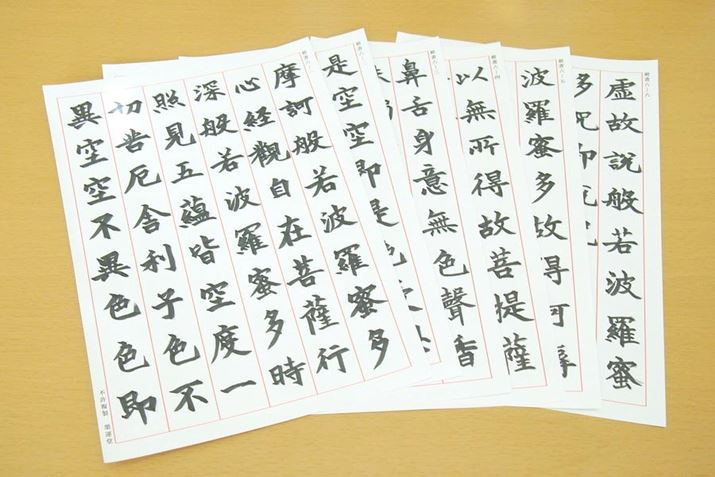 摩訶般若波羅蜜多
心經觀自在菩薩行
深般若波羅蜜多時
照見五蘊皆空度一
切苦厄舎利子色不
異空空不異色色即
不許複製 墨運堂
是空空即是色受
鼻舌身意無色聲香
以無所得故菩提薩
波羅蜜多故得阿耨
虚故説般若波羅蜜
多呪即説呪